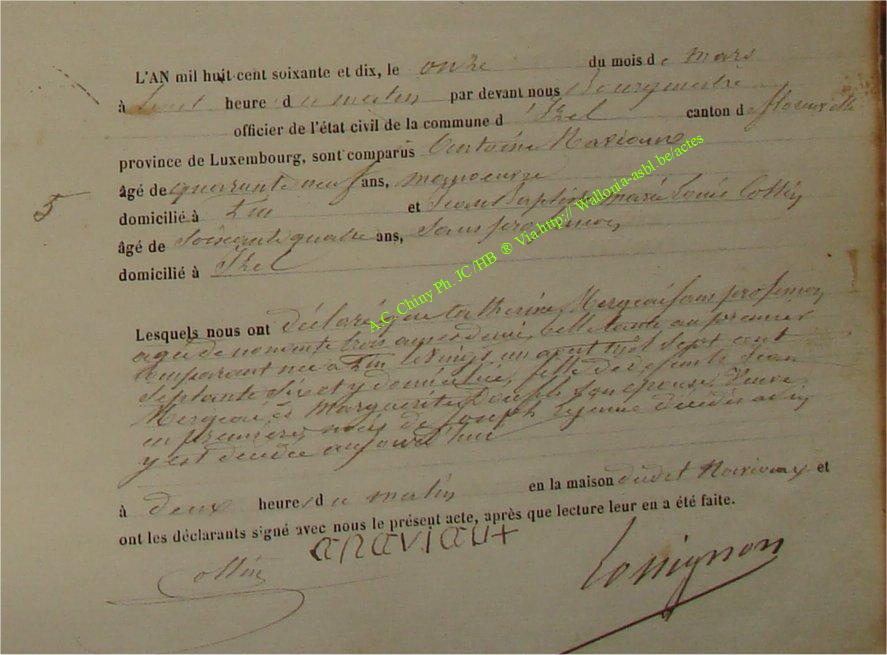 L'AN mil huit cent soixante et dix, le onze du mois de mars
à huit heure du matin par devant nous Bourgmestre
officier de l'état civil de la commune d'Izel canton de florenville
province de Luxembourg, sont comparus Antoine Naviaux
âgé de quarante neuf ans, manoeuvre
domicilié à et Jean Baptiste marie Louis Collin
âgé de Soixante quatre ans, Sans profession
domicilié à Izel
5
Lesquels nous ont déclaré que Catherine Mergeai sans profession
agée de nonante trois ans et demi, belle tante au premier
Comparant née à le vingt un août mil sept cent
Septante Six et y domiciliée, fille de défunts Jean
Mergeai et Marguerite son épouse, Veuve
en premières de Joseph Lejeune décédé
y est décédée aujourd'hui
à deux heures du matin en la maison dudit Naviaux et
ont les déclarants signé avec nous le présent acte, après que lecture leur en a été faite.
Collin anaviaux Rossignon
A.C. Chiny Ph. JC/HB ® Via http://Wallonia-asbl.be/actes